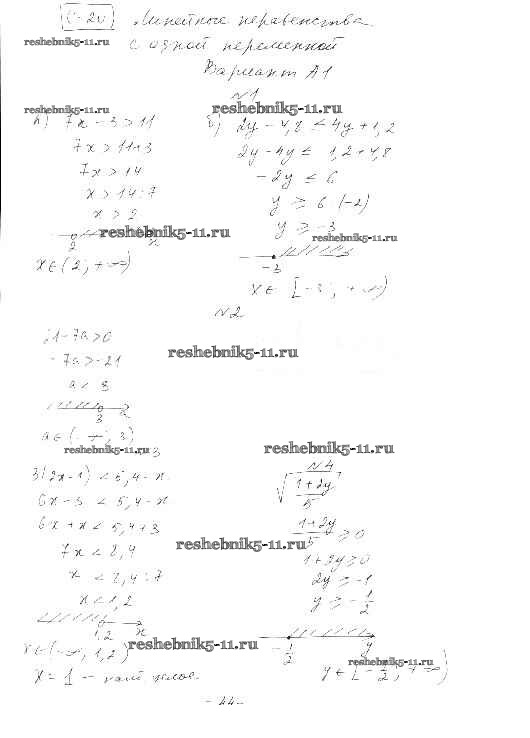 С-20 Линейные неравенства
reshebnik5-11.ru
с одной переменной
Вариант А1
№1
reshebnik5-11.ru reshebnik5-11.ru
а) 7x - 3 > 11
7x > 11+3
7x > 14
x > 14:7
x > 2
reshebnik5-11.ru
2 x
x ∈ (2; +∞)
б) 2y - 4,8 ≤ 4y + 1,2
2y - 4y ≤ 1,2 + 4,8
-2y ≤ 6
y ≥ 6 (-2)
y ≥ -3
reshebnik5-11.ru
-3
x ∈ [-3; +∞)
№2
21 - 7a > 0
-7a > -21
a < 3
reshebnik5-11.ru
3 a
a ∈ (-∞; 3)
reshebnik5-11.ru 3
3(2x-1) < 5,4 - x
6x - 3 < 5,4 - x
6x + x < 5,4 + 3
7x < 8,4
x < 8,4 : 7
x < 1,2
1,2 x
x ∈ (-∞; 1,2)
x = 1 - наиб. целое.
reshebnik5-11.ru
№4
√ 1+2y / 5
1+2y / 5 ≥ 0
reshebnik5-11.ru
1 + 2y ≥ 0
2y ≥ -1
y ≥ -1/2
reshebnik5-11.ru
-1/2 y
reshebnik5-11.ru
y ∈ [-1/2; +∞)
- 44 -